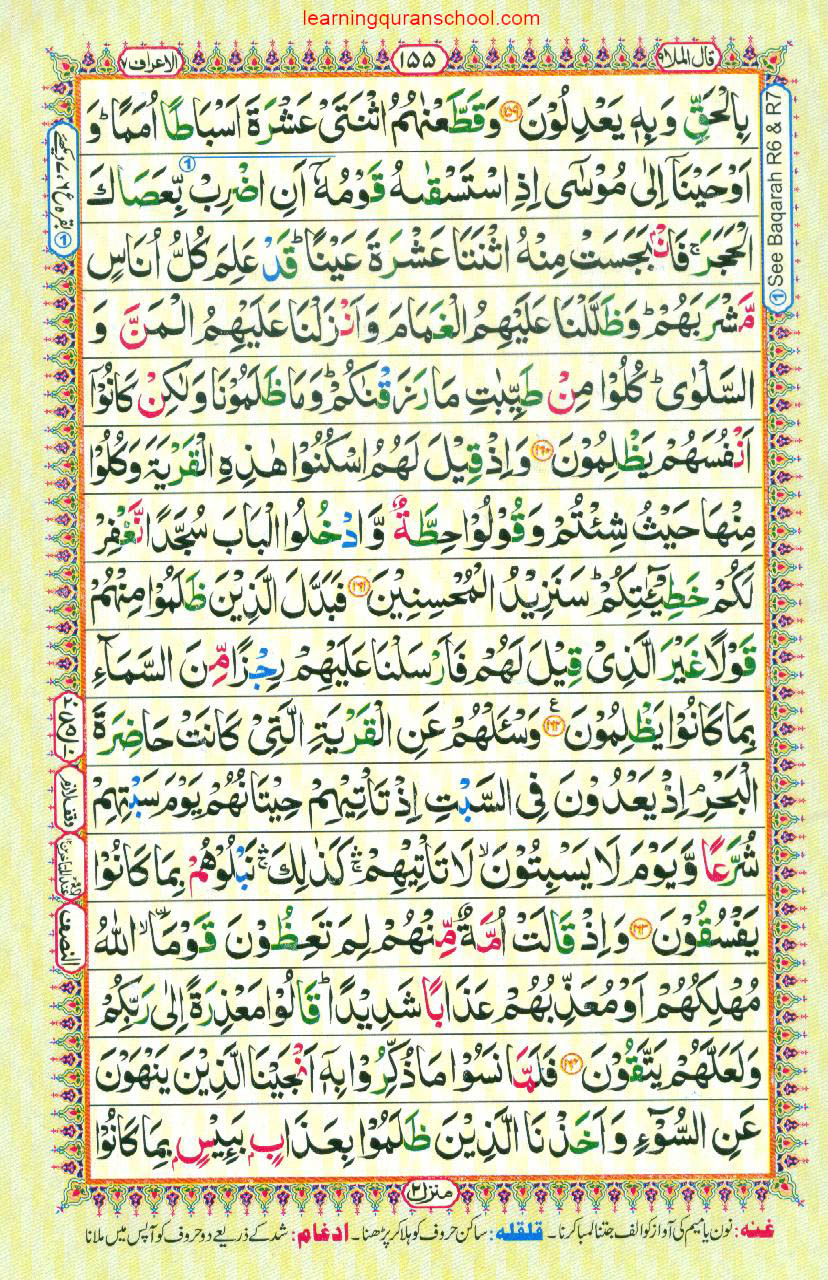 learningquranschool.com
قال الملا ۹
۱۵۵
الاعراف ۷
بِالْحَقِّ وَبِهٖ يَعْدِلُوْنَ ﴿۱۵۹﴾ وَقَطَّعْنٰهُمُ اثْنَتَىْ عَشْرَةَ اَسْبَاطًا اُمَمًا ؕ وَ
اَوْحَيْنَاۤ اِلٰى مُوْسٰٓى اِذِ اسْتَسْقٰىهُ قَوْمُهٗۤ اَنِ اضْرِبْ بِّعَصَاكَ
الْحَجَرَ ۚ فَانْۢبَجَسَتْ مِنْهُ اثْنَتَا عَشْرَةَ عَيْنًا ؕ قَدْ عَلِمَ كُلُّ اُنَاسٍ
مَّشْرَبَهُمْ ؕ وَظَلَّلْنَا عَلَيْهِمُ الْغَمَامَ وَاَنْزَلْنَا عَلَيْهِمُ الْمَنَّ وَ
السَّلْوٰى ؕ كُلُوْا مِنْ طَيِّبٰتِ مَا رَزَقْنٰكُمْ ؕ وَمَا ظَلَمُوْنَا وَلٰكِنْ كَانُوْۤا
اَنْفُسَهُمْ يَظْلِمُوْنَ ﴿۱۶۰﴾ وَاِذْ قِيْلَ لَهُمُ اسْكُنُوْا هٰذِهِ الْقَرْيَةَ وَكُلُوْا
مِنْهَا حَيْثُ شِئْتُمْ وَقُوْلُوْا حِطَّةٌ وَّادْخُلُوا الْبَابَ سُجَّدًا نَّغْفِرْ
لَكُمْ خَطِيْٓـٰٔتِكُمْ ؕ سَنَزِيْدُ الْمُحْسِنِيْنَ ﴿۱۶۱﴾ فَبَدَّلَ الَّذِيْنَ ظَلَمُوْا مِنْهُمْ
قَوْلًا غَيْرَ الَّذِىْ قِيْلَ لَهُمْ فَاَرْسَلْنَا عَلَيْهِمْ رِجْزًا مِّنَ السَّمَآءِ
بِمَا كَانُوْا يَظْلِمُوْنَ ﴿۱۶۲﴾ ع وَسْـَٔلْهُمْ عَنِ الْقَرْيَةِ الَّتِىْ كَانَتْ حَاضِرَةَ
الْبَحْرِ ۘ اِذْ يَعْدُوْنَ فِى السَّبْتِ اِذْ تَاْتِيْهِمْ حِيْتَانُهُمْ يَوْمَ سَبْتِهِمْ
شُرَّعًا وَّيَوْمَ لَا يَسْبِتُوْنَ ۙ لَا تَاْتِيْهِمْ ۛۚ كَذٰلِكَ ۛۚ نَبْلُوْهُمْ بِمَا كَانُوْا
يَفْسُقُوْنَ ﴿۱۶۳﴾ وَاِذْ قَالَتْ اُمَّةٌ مِّنْهُمْ لِمَ تَعِظُوْنَ قَوْمَاۨ ۙ اللّٰهُ
مُهْلِكُهُمْ اَوْ مُعَذِّبُهُمْ عَذَابًا شَدِيْدًا ؕ قَالُوْا مَعْذِرَةً اِلٰى رَبِّكُمْ
وَلَعَلَّهُمْ يَتَّقُوْنَ ﴿۱۶۴﴾ فَلَمَّا نَسُوْا مَا ذُكِّرُوْا بِهٖۤ اَنْجَيْنَا الَّذِيْنَ يَنْهَوْنَ
عَنِ السُّوْٓءِ وَاَخَذْنَا الَّذِيْنَ ظَلَمُوْا بِعَذَابٍۭ بَـِٔيْسٍۭ بِمَا كَانُوْا
① See Baqarah R6 & R7
النصف
منزل ۲
غنه: نون یا میم کی آواز کو الف جتنا لمبا کرنا۔ قلقله: ساکن حروف کو ہلا کر پڑھنا۔ ادغام: شد کے ذریعے دو حروف کو آپس میں ملانا